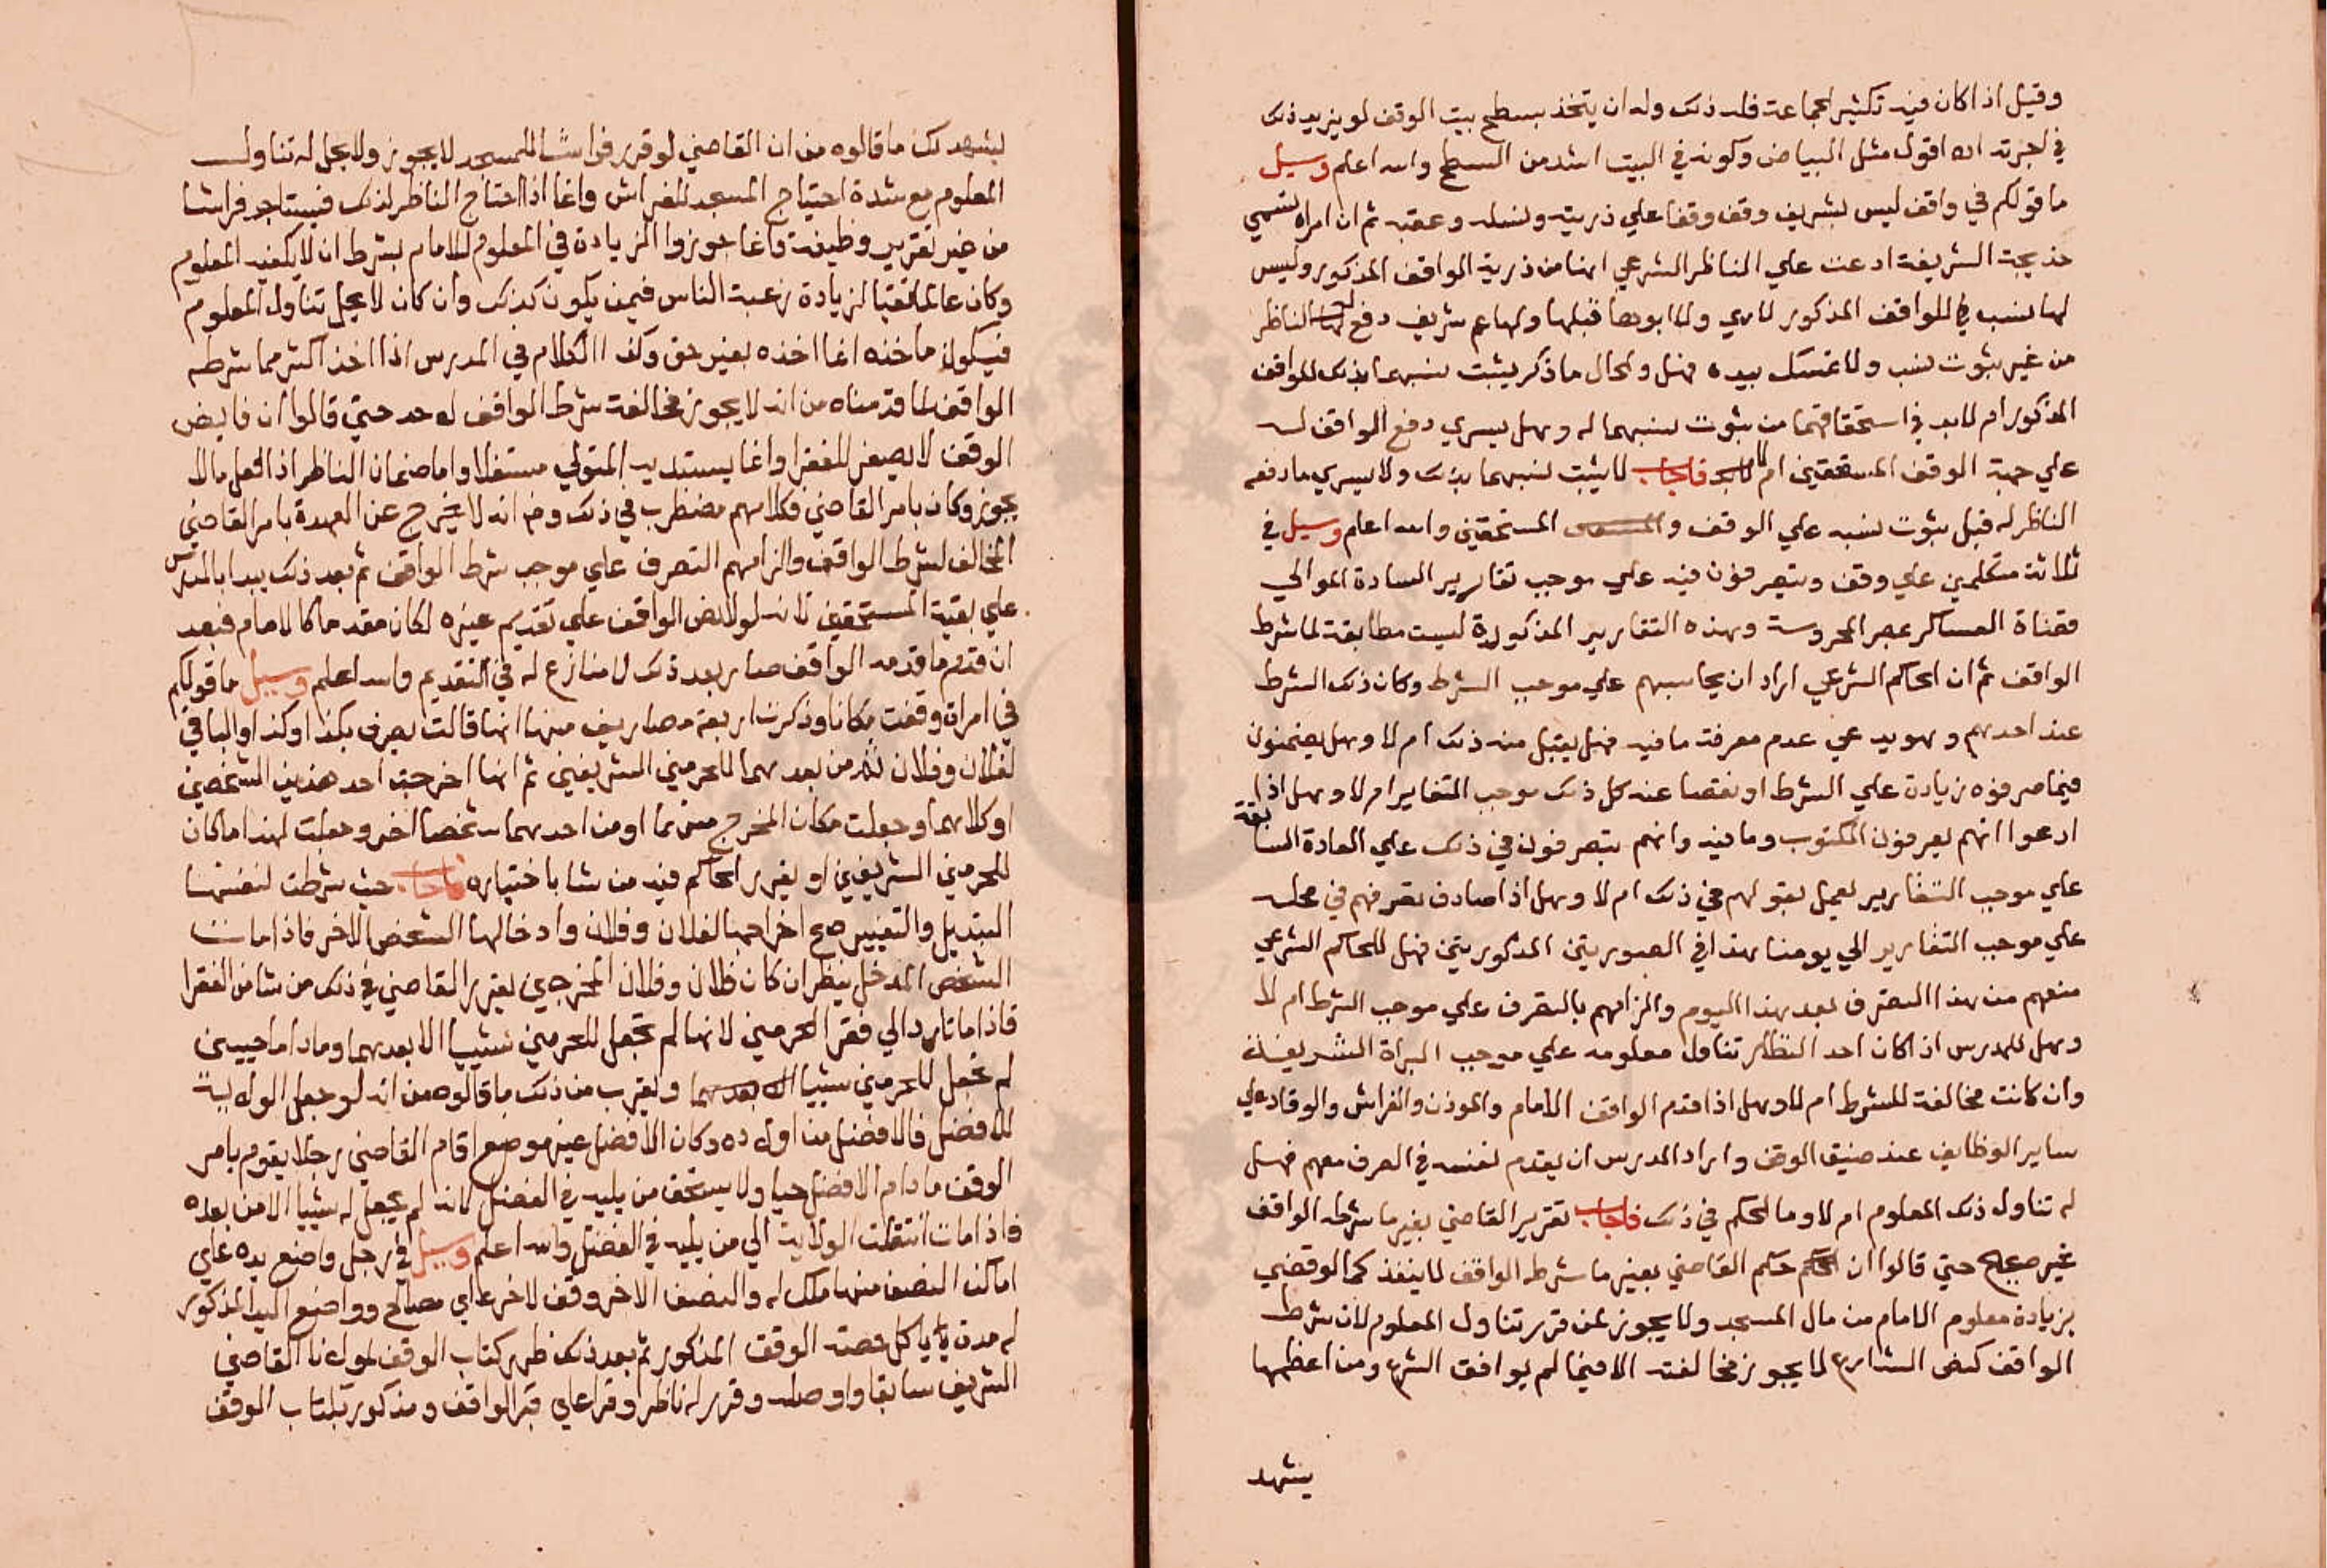 وقيل اذا كان فيه تكثير الجماعة فله ذلك وله ان يتخذ بسطح بيت الوقف لو يزيد ذلك
في اجرته اه اقول مثل البياض وكونه في البيت اشد من السطح والله اعلم وسيل
ما قولكم في واقف ليس بشريف وقف وقفا علي ذريته ونسله وعقبه ثم ان امراة تسمي
خديجة الشريفة ادعت علي الناظر الشرعي انها من ذرية الواقف المذكور وليس
لها نسب للواقف المذكور لا هي ولا ابوها قبلها ولها عم شريف دفع لها الناظر
من غير ثبوت نسب ولا تمسك بيده فهل والحال ما ذكر يثبت نسبهما بذلك للواقف
المذكور ام لا بد في استحقاقهما من ثبوت نسبهما له وهل يسري دفع الواقف له
علي جهة الوقف المستحقين ام لا فاجاب لا يثبت نسبهما بذلك ولا يسري ما دفعه
الناظر له قبل ثبوت نسبه علي الوقف و المستحقين والله اعلم وسيل في
ثلاثة متكلمين علي وقف ويتصرفون فيه علي موجب تقارير السادة الموالي
قضاة العساكر بمصر المحروسة وهذه التقارير المذكورة ليست مطابقة لما شرط
الواقف ثم ان الحاكم الشرعي اراد ان يحاسبهم علي موجب الشرط وكان ذلك الشرط
عند احدهم وهو يدعي عدم معرفة ما فيه فهل يقبل منه ذلك ام لا وهل يضمنون
فيما صرفوه زيادة علي الشرط او نقصا عنه كل ذلك بموجب التقارير ام لا وهل اذا
ادعوا انهم يعرفون المكتوب وما فيه وانهم يتصرفون في ذلك علي العادة السابقة
علي موجب التقارير يعمل بقولهم في ذلك ام لا وهل اذا صادف تصرفهم في محله
علي موجب التقارير الي يومنا هذا في الصورتين المذكورتين فهل للحاكم الشرعي
منعهم من هذا التصرف بعد هذا اليوم والزامهم بالتصرف علي موجب الشرط ام لا
وهل للمدرس اذا كان احد النظار تناول معلومه علي موجب البراة الشريفة
وان كانت مخالفة للشرط ام لا وهل اذا قدم الواقف الامام والموذن والفراش والوقاد علي
ساير الوظايف عند ضيق الوقف واراد المدرس ان يقدم نفسه في الصرف معهم فهل
له تناول ذلك المعلوم ام لا وما الحكم في ذلك فاجاب تقرير القاضي بغير ما شرطه الواقف
غير صحيح حتي قالوا ان حكم القاضي بغير ما شرطه الواقف لا ينفذ كما لو قضي
بزيادة معلوم الامام من مال المسجد ولا يجوز لمن قرر تناول المعلوم لان شرط
الواقف كنص الشارع لا يجوز مخالفته الا فيما لم يوافق الشرع ومن اعظمها
يشهد
يشهد لك ما قالوه من ان القاضي لو قرر فراشا للمسجد لا يجوز ولا يحل له تناول
المعلوم مع شدة احتياج المسجد للفراش وانما اذا احتاج الناظر لذلك فيستاجر فراشا
من غير تقرير وظيفة وانما جوزوا الزيادة في المعلوم للامام بشرط ان لا يكفيه المعلوم
وكان عالما تقيا لزيادة رغبة الناس فيمن يكون كذلك وان كان لا يحل تناول المعلوم
فيكون ما خذه انما اخذه بغير حق وكذا الكلام في المدرس اذا اخذ اكثر مما شرطه
الواقف لما قدمناه من انه لا يجوز مخالفة شرط الواقف لاحد حتي قالوا ان فايض
الوقف لا يصرف للفقرا وانما يستديد المتولي مستغلا واما ضمان الناظر اذا فعل ما لا
يجوز وكان بامر القاضي فكلامهم مضطرب في ذلك وفي انه لا يخرج عن العهدة بامر القاضي
المخالف لشرط الواقف والزامهم التصرف علي موجب شرط الواقف ثم بعد ذلك يبدا بالمدرس
علي بقية المستحقين لانه لولا نص الواقف علي تقديم غيره لكان مقدما كالامام فبعد
ان قدم ما قدمه الواقف صار بعد ذلك لا منازع له في التقديم والله اعلم وسيل ما قولكم
في امراة وقفت مكانا وذكرت اربعة مصاريف منها انها قالت يصرف بكذا وكذا والباقي
لفلان وفلان ثم من بعدهما للحرمين الشريفين ثم انها اخرجت احد هذين الشخصين
او كلاهما وجعلت مكان المخرج منهما او من احدهما شخصا اخر وجعلت لهذا ما كان
للحرمين الشريفين او يقرر الحاكم فيه من شا باختياره فاجاب حيث شرطت لنفسها
التبديل والتغيير صح اخراجها لفلان وفلان وادخالها الشخص الاخر فاذا مات
الشخص المدخل ينظر ان كان فلان وفلان المخرجين يقرر القاضي في ذلك من شا من الفقرا
فاذا ماتا رد الي فقرا الحرمين لانها لم تجعل للحرمين شييا الا بعدهما وما داما حيين
لم تجعل للحرمين شييا ويقرب من ذلك ما قالوه من انه لو جعل الولاية
للافضل فالافضل من اولاده وكان الافضل غير موضع اقام القاضي رجلا يقوم بامر
الوقف ما دام الافضل حيا ولا يستحق من يليه في الفضل لانه لم يجعل له شييا الا من بعده
فاذا مات انتقلت الولاية الي من يليه في الفضل والله اعلم وسيل في رجل واضع يده علي
اماكن النصف منها ملك له والنصف الاخر وقف لاخر علي مصالح وواضع اليد المذكور
له مدة ياكل حصة الوقف المذكور ثم بعد ذلك ظهر كتاب الوقف لمولانا القاضي
الشريف سابقا واوصله وقرر له ناظرا وقرا علي قبر الواقف ومذكور بكتاب الوقف